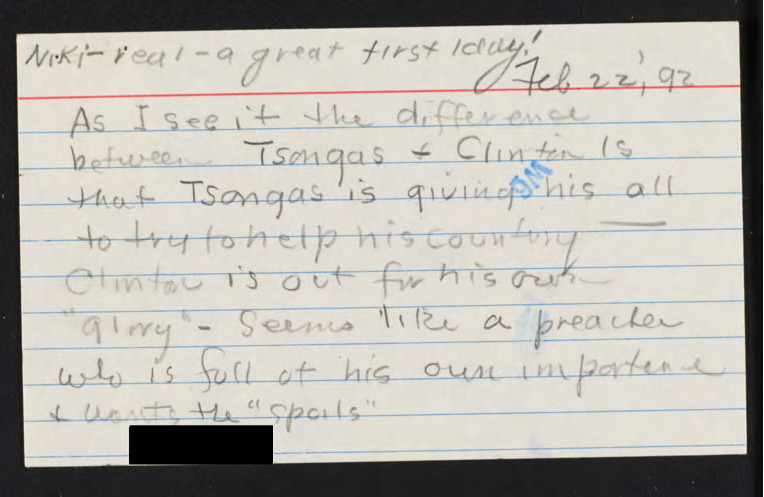 Niki - real - a great first day!
Feb. 22, 92
As I see it the difference
between Tsongas + Clinton Is
that Tsongas is giving his all
to try to help his country
Clinton is out for his own
"glory" - Seems like a preacher
who is full of his own importance
+ wants the "spoils"